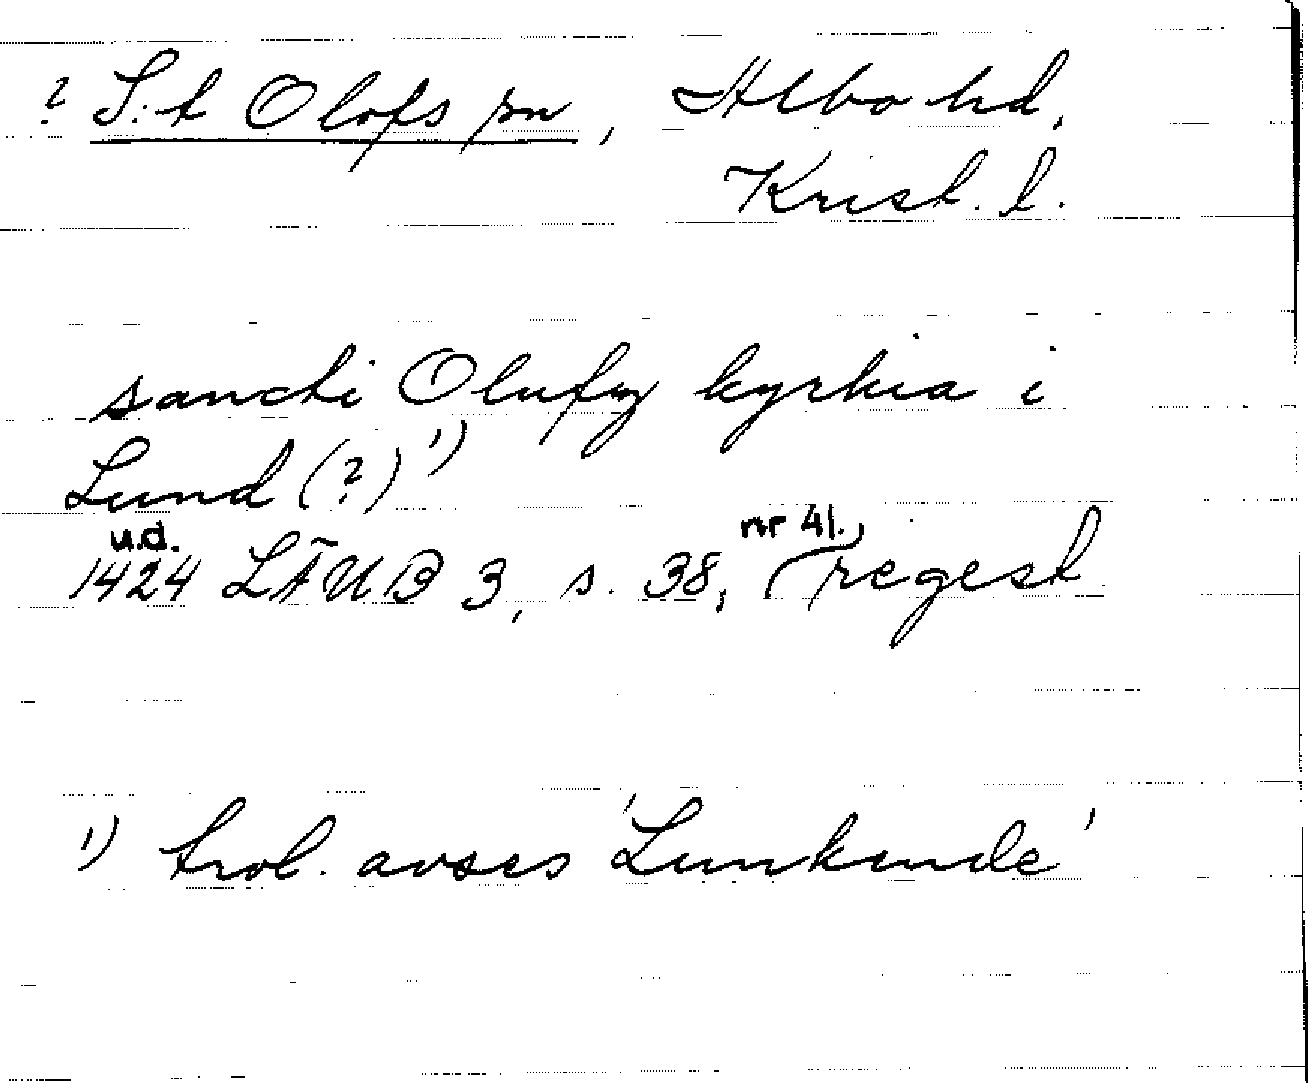 ? S:t Olofs sn, Albo hd,
Krist. l.
sancti Olufy kyrkia i
Lund (?) 1)
u.d. nr 41.
1424 LÄUB 3, s. 38, (regest
1) trol. avses 'Lunkende'